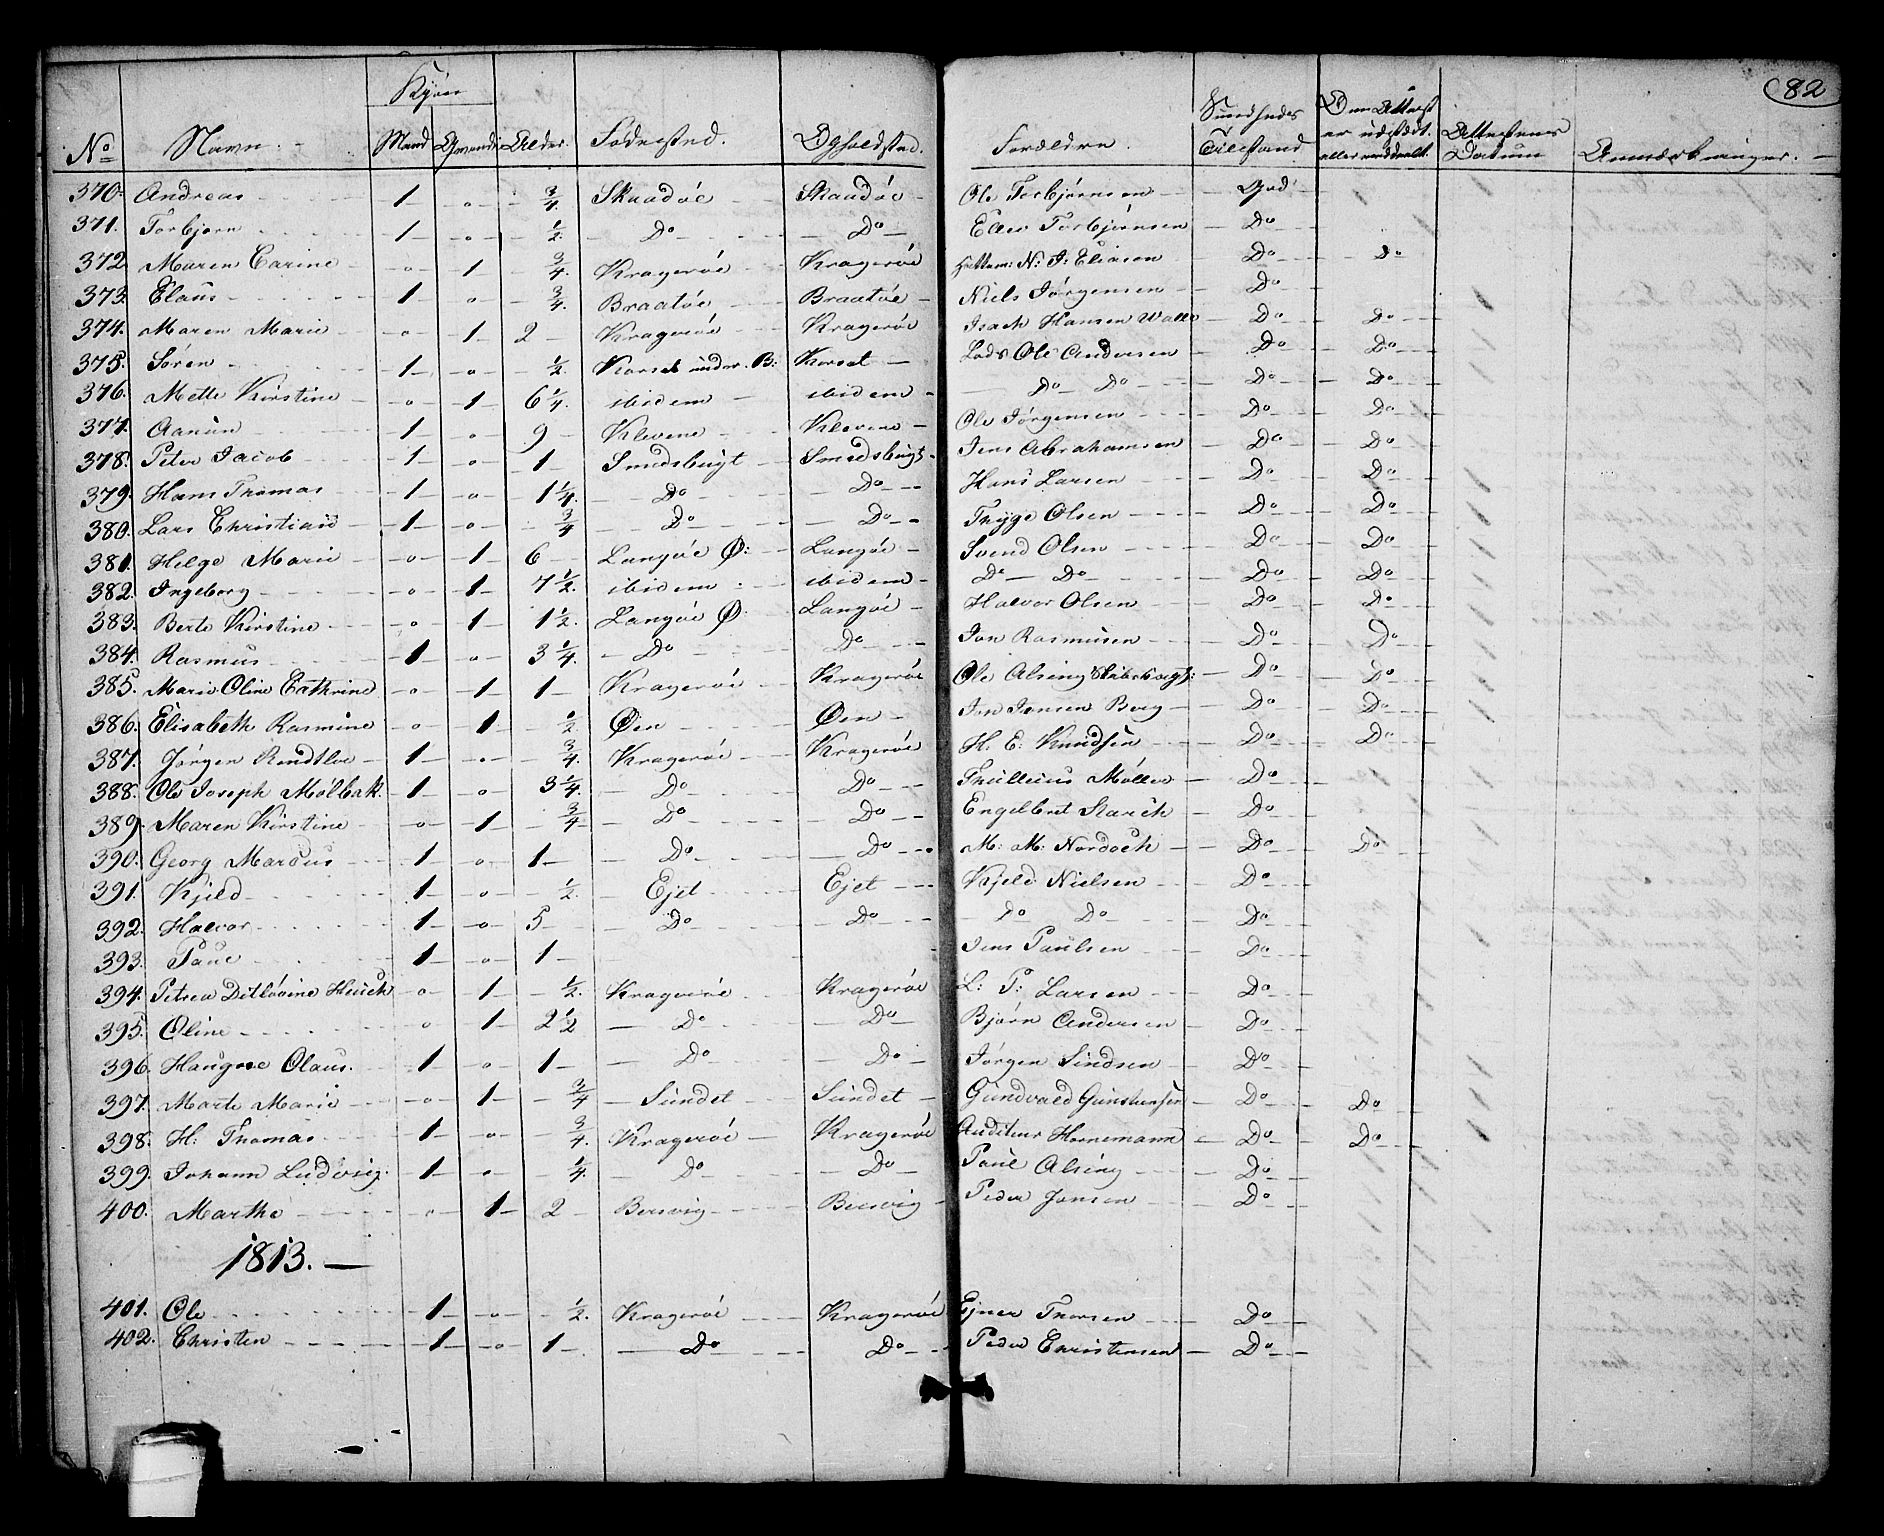 82
Kjön
No Navn. Mand Qvinde Alder. Födested. Opholdsted. Forældre. Sundheds Tilstand Om Attest er udstædt eller meddeelt. Attestens Datum Anmærkninger.
370. Andreas 1 0 3/4. Skaadöe Skaadöe Ole Torbjörnsen God
371. Torbjörn 1 0 1/2. Do Do Ellev Torbjörnsen Do
372 Maren Carine 0 1 3/4. Krageröe Krageröe N: J: Eliasen Do Do
373. Claus 1 0 3/4. Braatöe Braatöe Niels Jörgensen Do
374. Maren Marie 0 1 2 Krageröe Krageröe Isach Hansen Walle Do Do
375. Sören 1 0 1/2. Korset under B: Korset Lods Ole Andersen Do Do
376. Mette Kirstine 0 1 6 1/4. ibidem ibidem Do Do Do Do
377. Aanun 1 0 9 Klevene Klevene Ole Jörgensen Do Do
378. Peter Jacob 1 0 1 Smedsbugt Smedsbugt Jens Abrahamsen Do Do
379. Hans Thomas 1 0 1 1/4. Do Do Hans Larsen Do Do
380. Lars Christian 1 0 3/4 Do Do Thyge Olsen Do Do
381. Helge Marie 0 1 6 Langöe Ø: Langöe Svend Olsen Do Do
382. Ingeborg 0 1 7 1/2 ibidem ibidem Do Do Do Do
383. Berte Kirstine 0 1 1 1/2. Langöe Ø Langöe Halvor Olsen Do Do
384. Rasmus 1 0 3 1/4. Do Do Jon Rasmusen Do Do
385. Marie Oline Cathrine 0 1 1 Krageröe Krageröe Ole Alsing Do Do
386. Elisabeth Rasmine 0 1 1/2. Øen Øen Jon Jansen Berg Do Do
387. Jörgen 1 0 3/4. Krageröe Krageröe H. E. Knudsen Do Do
388. Ole Joseph Mölbak. 1 0 3 1/4. Do Do Thullius Möller Do
389. Maren Kirstine 0 1 3/4 Do Do Engelbret Do
390. Georg Marcus 1 0 1 Do Do M: M: Nordoch Do Do
391. Kjeld 1 0 1/2. Ejet Ejet Kjeld Nielsen Do
392. Halvor 1 0 5 Do Do Do Do Do
393. Paul 1 0 1 Jens Paulsen Do
394. Petrea Ditlövine Heuch 0 1 1/2. Krageröe Krageröe L: P: Larsen Do
395. Oline 0 1 2 1/2 Do Do Björn Andersen Do
396. Olaus. 1 0 1 Do Do Jörgen Sindsen Do
397. Marte Marie 0 1 3/4 Sundet Sundet Gundvald Gunstensen Do Do
398. H: Thomas 1 0 3/4. Krageröe Krageröe Auditeur Hornemann Do Do
399. Johann Ludvig. 1 0 1/4. Do Do Paul Alsing Do
400. Marthe 0 1 2 Bersvig Bersvig Peder Jansen Do
1813.
401. Ole 1 0 1/2. Krageröe Krageröe Ejner Thorsen Do
402. Christen 1 0 1 Do Do Peder Christensen Do